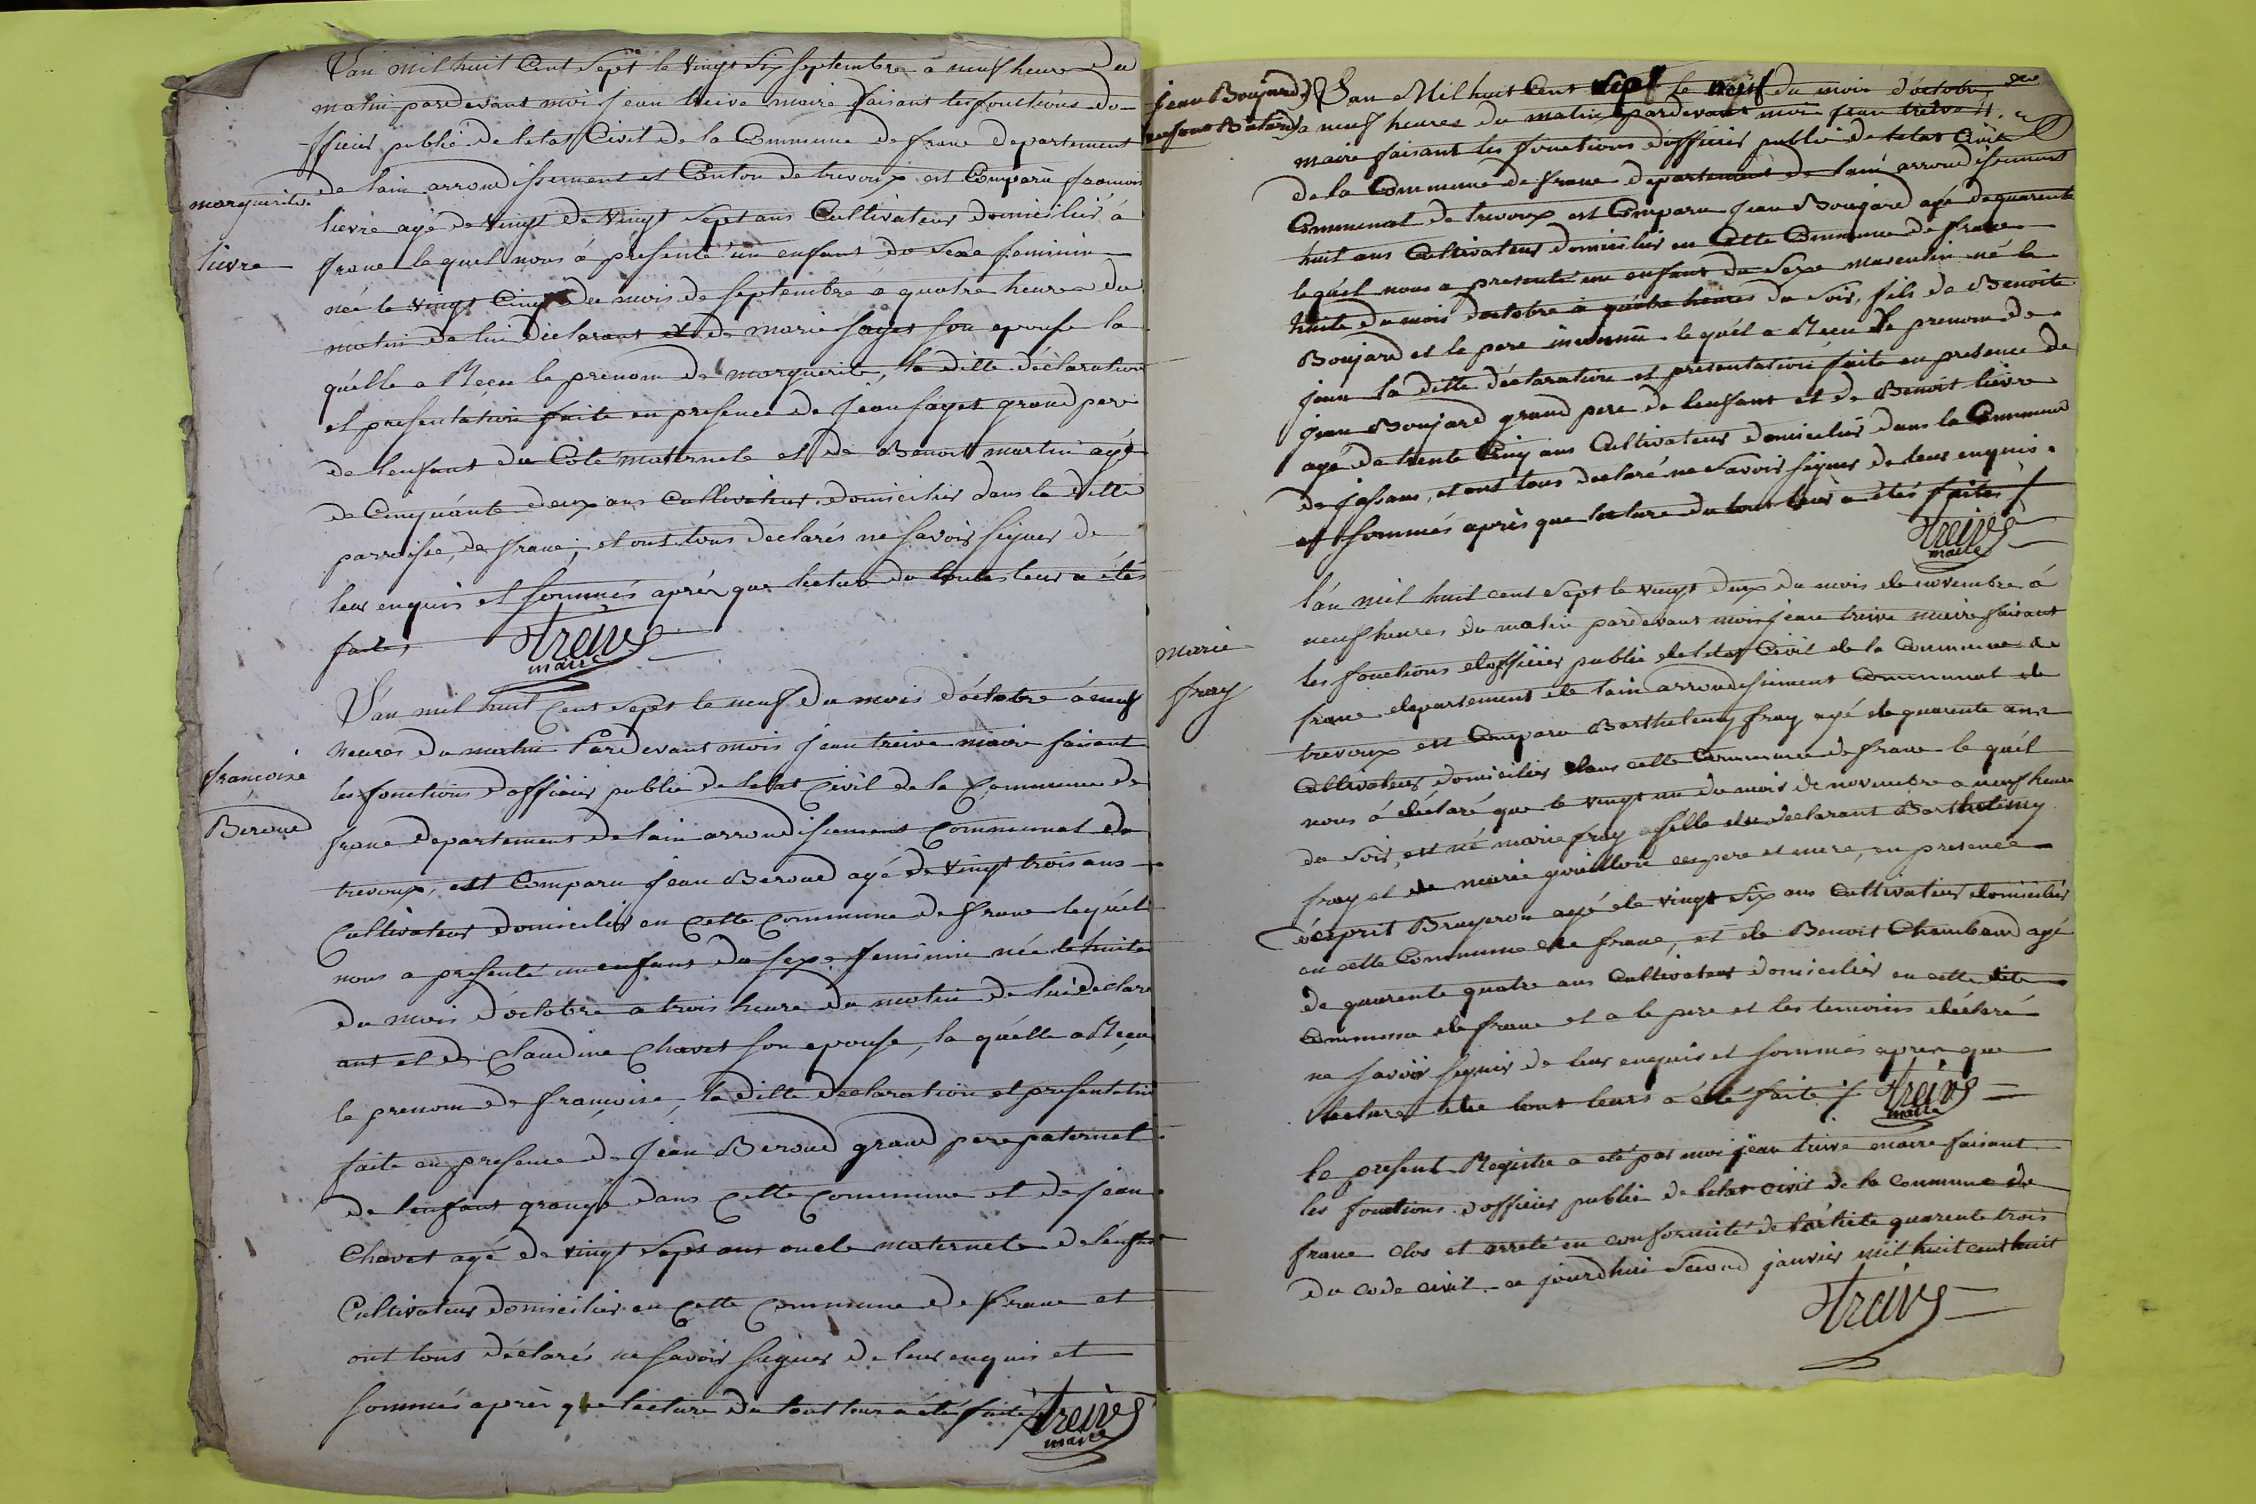 L'an mil huit Cent Sept le vingt Six septembre à neuf heure du
matin pardevant moi jean treive maire faisant les fonctions do
fficier public de letat Civil de la Commune de frans departement
de lain arrondissement et Canton de trevoux est Comparû francois
marguerite
lievre agé de vingt de vingt Sept ans Cultivateur domicilié à
lievre
frans lequel nous à presenté un enfant do Sexe feminin
née le vingt Cinq du mois de septembre a quatre heures du
matin de lui declarant et de marie fayet son epouse la
quélle a Reçu le prenom de marguerite, la ditte déclaration
et presentation faite en presence de jean fayet grand pere
de lenfant du Coté maternele et de Benoit martin agé
de Cinquante deux ans Cultivateur domicilier dans la ditte
parroisse de frans, et ont tous declarés ne savoir signer de
leur enquis et sommés aprés que lecture du toutes leur a étés
faite,
treive
maire
L'an mil huit Cent Sept le neuf du mois d'octobre à neuf
heures du matin Pardevant mois jean treive maire faisant
françoise
les fonctions d'officier public de letat Civil de la Commune de
Beroud
frans departement de lain arrondissement Communal de
trevoux, est Comparu jean Beroud agé de vingt trois ans
Cultivateur domicilié en Cette Commune de frans lequél
nous a presenté un enfant du sexe feminin née le huite
du mois d'octobre a trois heure du matin de lui déclar
ant et de Claudine Chavet son epouse, la quélle a Reçu
le prenom de françoise, la ditte declaration et presentation
faite en presence de jean Beroud grand pere paternel
de lenfant grangé dans Cette Commune et de jean
Chavet agé de vingt Sept ans oncle maternele de lénfant
Cultivateur domicilier en Cette Commune de frans et
ont tous déclarés ne savoir signer de leur enquis et
sommés aprèr que lecture du tout leur a été faite
treive
maire
jean Boujard
enfant Batard
L'an Mil huit Cent Sept le neuf du mois d'octobre
a neuf heures du matin pardevant moi jean treive
maire faisant les fonctions d'officier public de letat Civil
de la Commune de frans departement de lain arrondissement
Communal de trevoux est Comparu jean Boujard agé de quarente
huit ans Cultivateur domicilier en Cette Commune de frans
lequél nous a presenté un enfant du Sexe masculin né le
huite du mois d'octobre à quatre heures du Soir, fils de Benoite
Boujard et le pere inconnu lequél a Recu le prenom de
jean la ditte déclaration et presentation faite en presence de
jean Boujard grand pere de lenfant et de Benoit lievre
agé de trente Cinq ans Cultivateur domicilier dans la Commune
de jassans, et ont tous declaré ne savoir signer de leur enquis
et sommés après que lecture du tout leur a étés faites
treive
maire
l'án mil huit cent Sept le vingt deux du mois de novembre à
neuf heures du matin pardevant moi jean treive maire faisant
marie
les fonctions d'officier public de letat Civil de la Commune de
fray
frans departement de lain arrondissement Communal de
trevoux est Comparu Barthelemy fray agé de quarente ans
Cultivateur domicilier dans cette Commune de frans le quél
nous á déclaré que le vingt un du mois de novembre a neuf heure
du soir, est né marie fray fille du declarant Barthelemy
fray et de marie goiéllon ces pere et mere, en presence
d'esprit Brugeron agé de vingt Six ans Cultivateur domicilier
en cette Commune de frans, et de Benoit Chambaud agé
de quarente quatre ans Cultivateur domicilier en cette dite
Commune de frans et a le pere et les temoins déclaré
ne savoir signer de leur enquis et sommés aprer que
lecture de tout leurs a été faite
treive
maire
le present Registre a été par moi jean treive maire faisant
les fonctions d'officier public de letat civil de la commune de
frans clos et arreté en conformité de lárticle quarente trois
du code civil ce jourdhui second janvier mil huit cent huit
treive